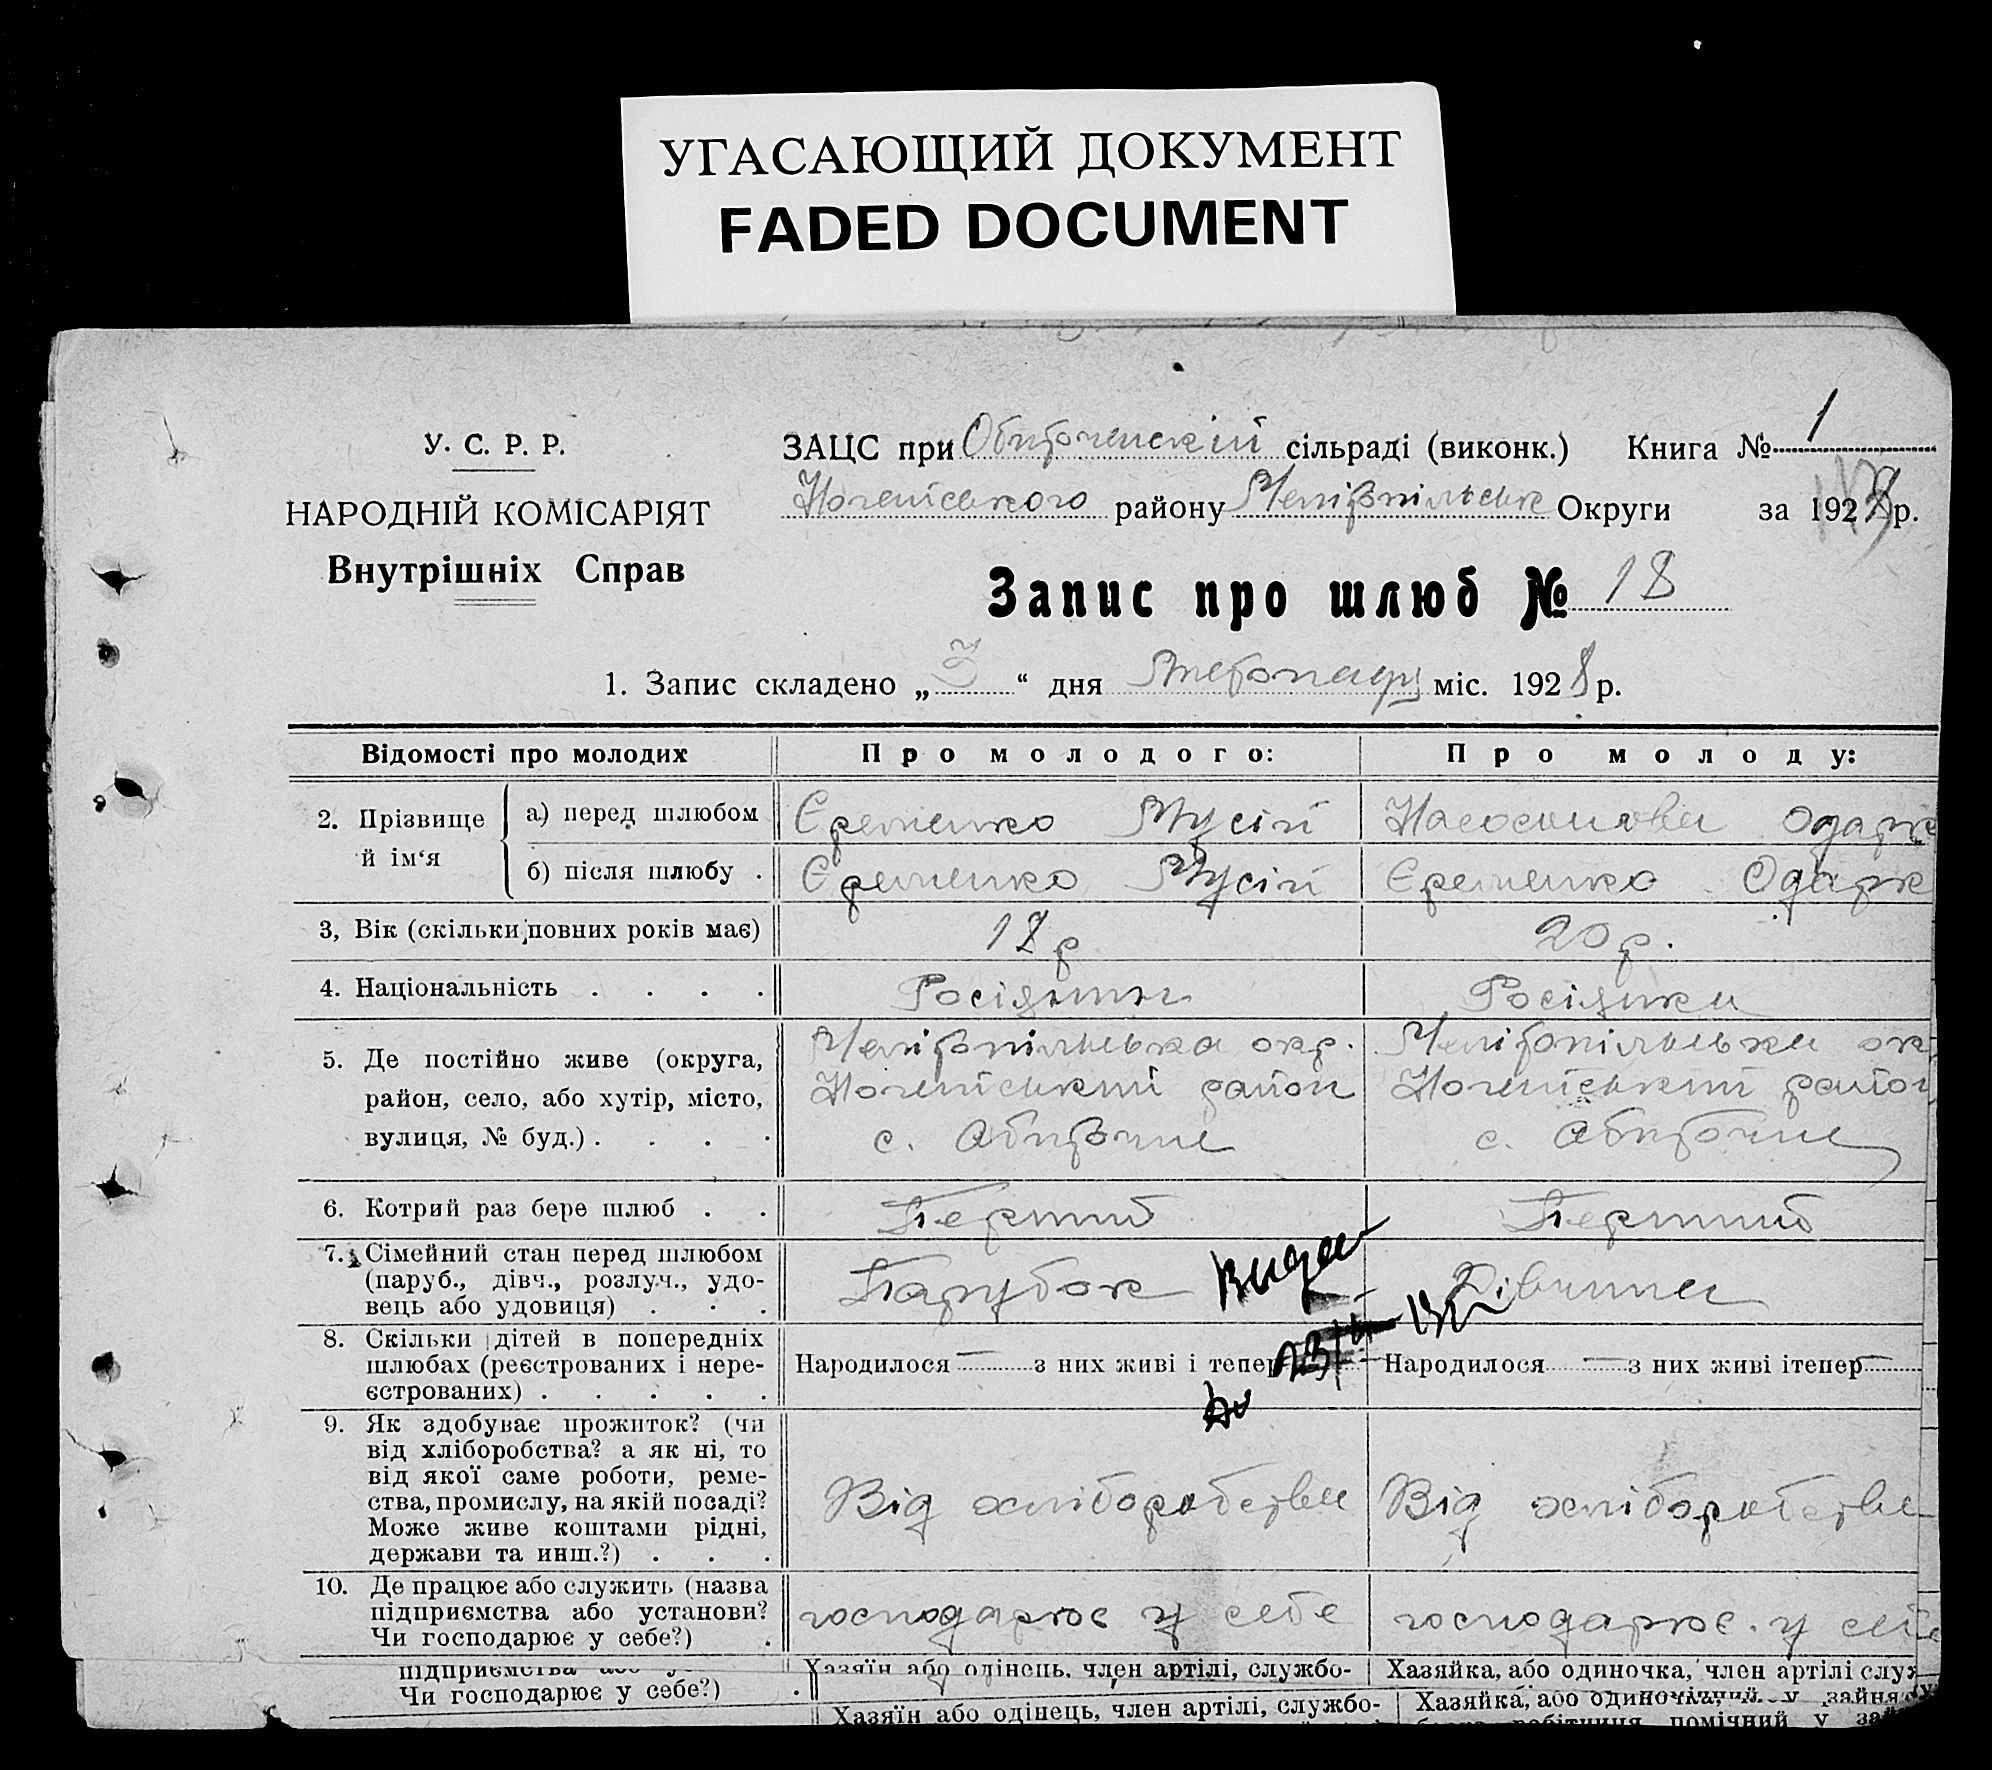 УГАСАЮЩИЙ ДОКУМЕНТ
FADED DOCUMENT
У. С. Р. Р.
НАРОДНІЙ КОМІСАРІЯТ
Внутрішніх Справ
ЗАЦС при Обиточенскій сільраді (виконк.) Книга № 1
Ногайського району Мелітопільськ Округи за 1928 р.
Запис про шлюб № 18
1. Запис складено „ “ дня міс. 1928 р.
Відомості про молодих Про молодого: Про молоду:
2. Прізвище й ім‘я
а) перед шлюбом Єременко Мусій Одарк
б) після шлюбу . Єременко Мусій Єременко Одарк
3, Вік (скільки повних років має) р 20 р.
4. Національність . . . . Росіянин Росіянка
5. Де постійно живе (округа, район, село, або хутір, місто, вулиця, № буд.) . . . .
Мелітопільська окр. Мелітопільська ок
Ногайський район Ногайський район
с. Обиточне с. Обиточне
6. Котрий раз бере шлюб . . Перший Перший
7. Сімейний стан перед шлюбом
(паруб., дівч., розлуч., удо-
вець або удовиця) . . . Парубок Дівчина
8. Скільки дітей в попередніх
шлюбах (реєстрованих і нере-
єстрованих) . . . . .
Народилося — з них живі і тепер Народилося — з них живі ітепер —
9. Як здобуває прожиток? (чи
від хліборобства? а як ні, то
від якої саме роботи, реме-
ства, промислу, на якій посаді?
Може живе коштами рідні,
держави та инш.?) . . .
Від хліборобства Від хліборобства
10. Де працює або служить (назва
підприємства або установи?
Чи господарює у себе?) .
господарює у себе господарює у себе
підприємства або у
Чи господарює у себе?) .
Хазяїн або одінець, член артілі, службо- Хазяйка, або одиночка, член артілі служ
Хазяїн або одінець, член артілі, службо- Хазяйка, або одиночка,
робітниця помічний у